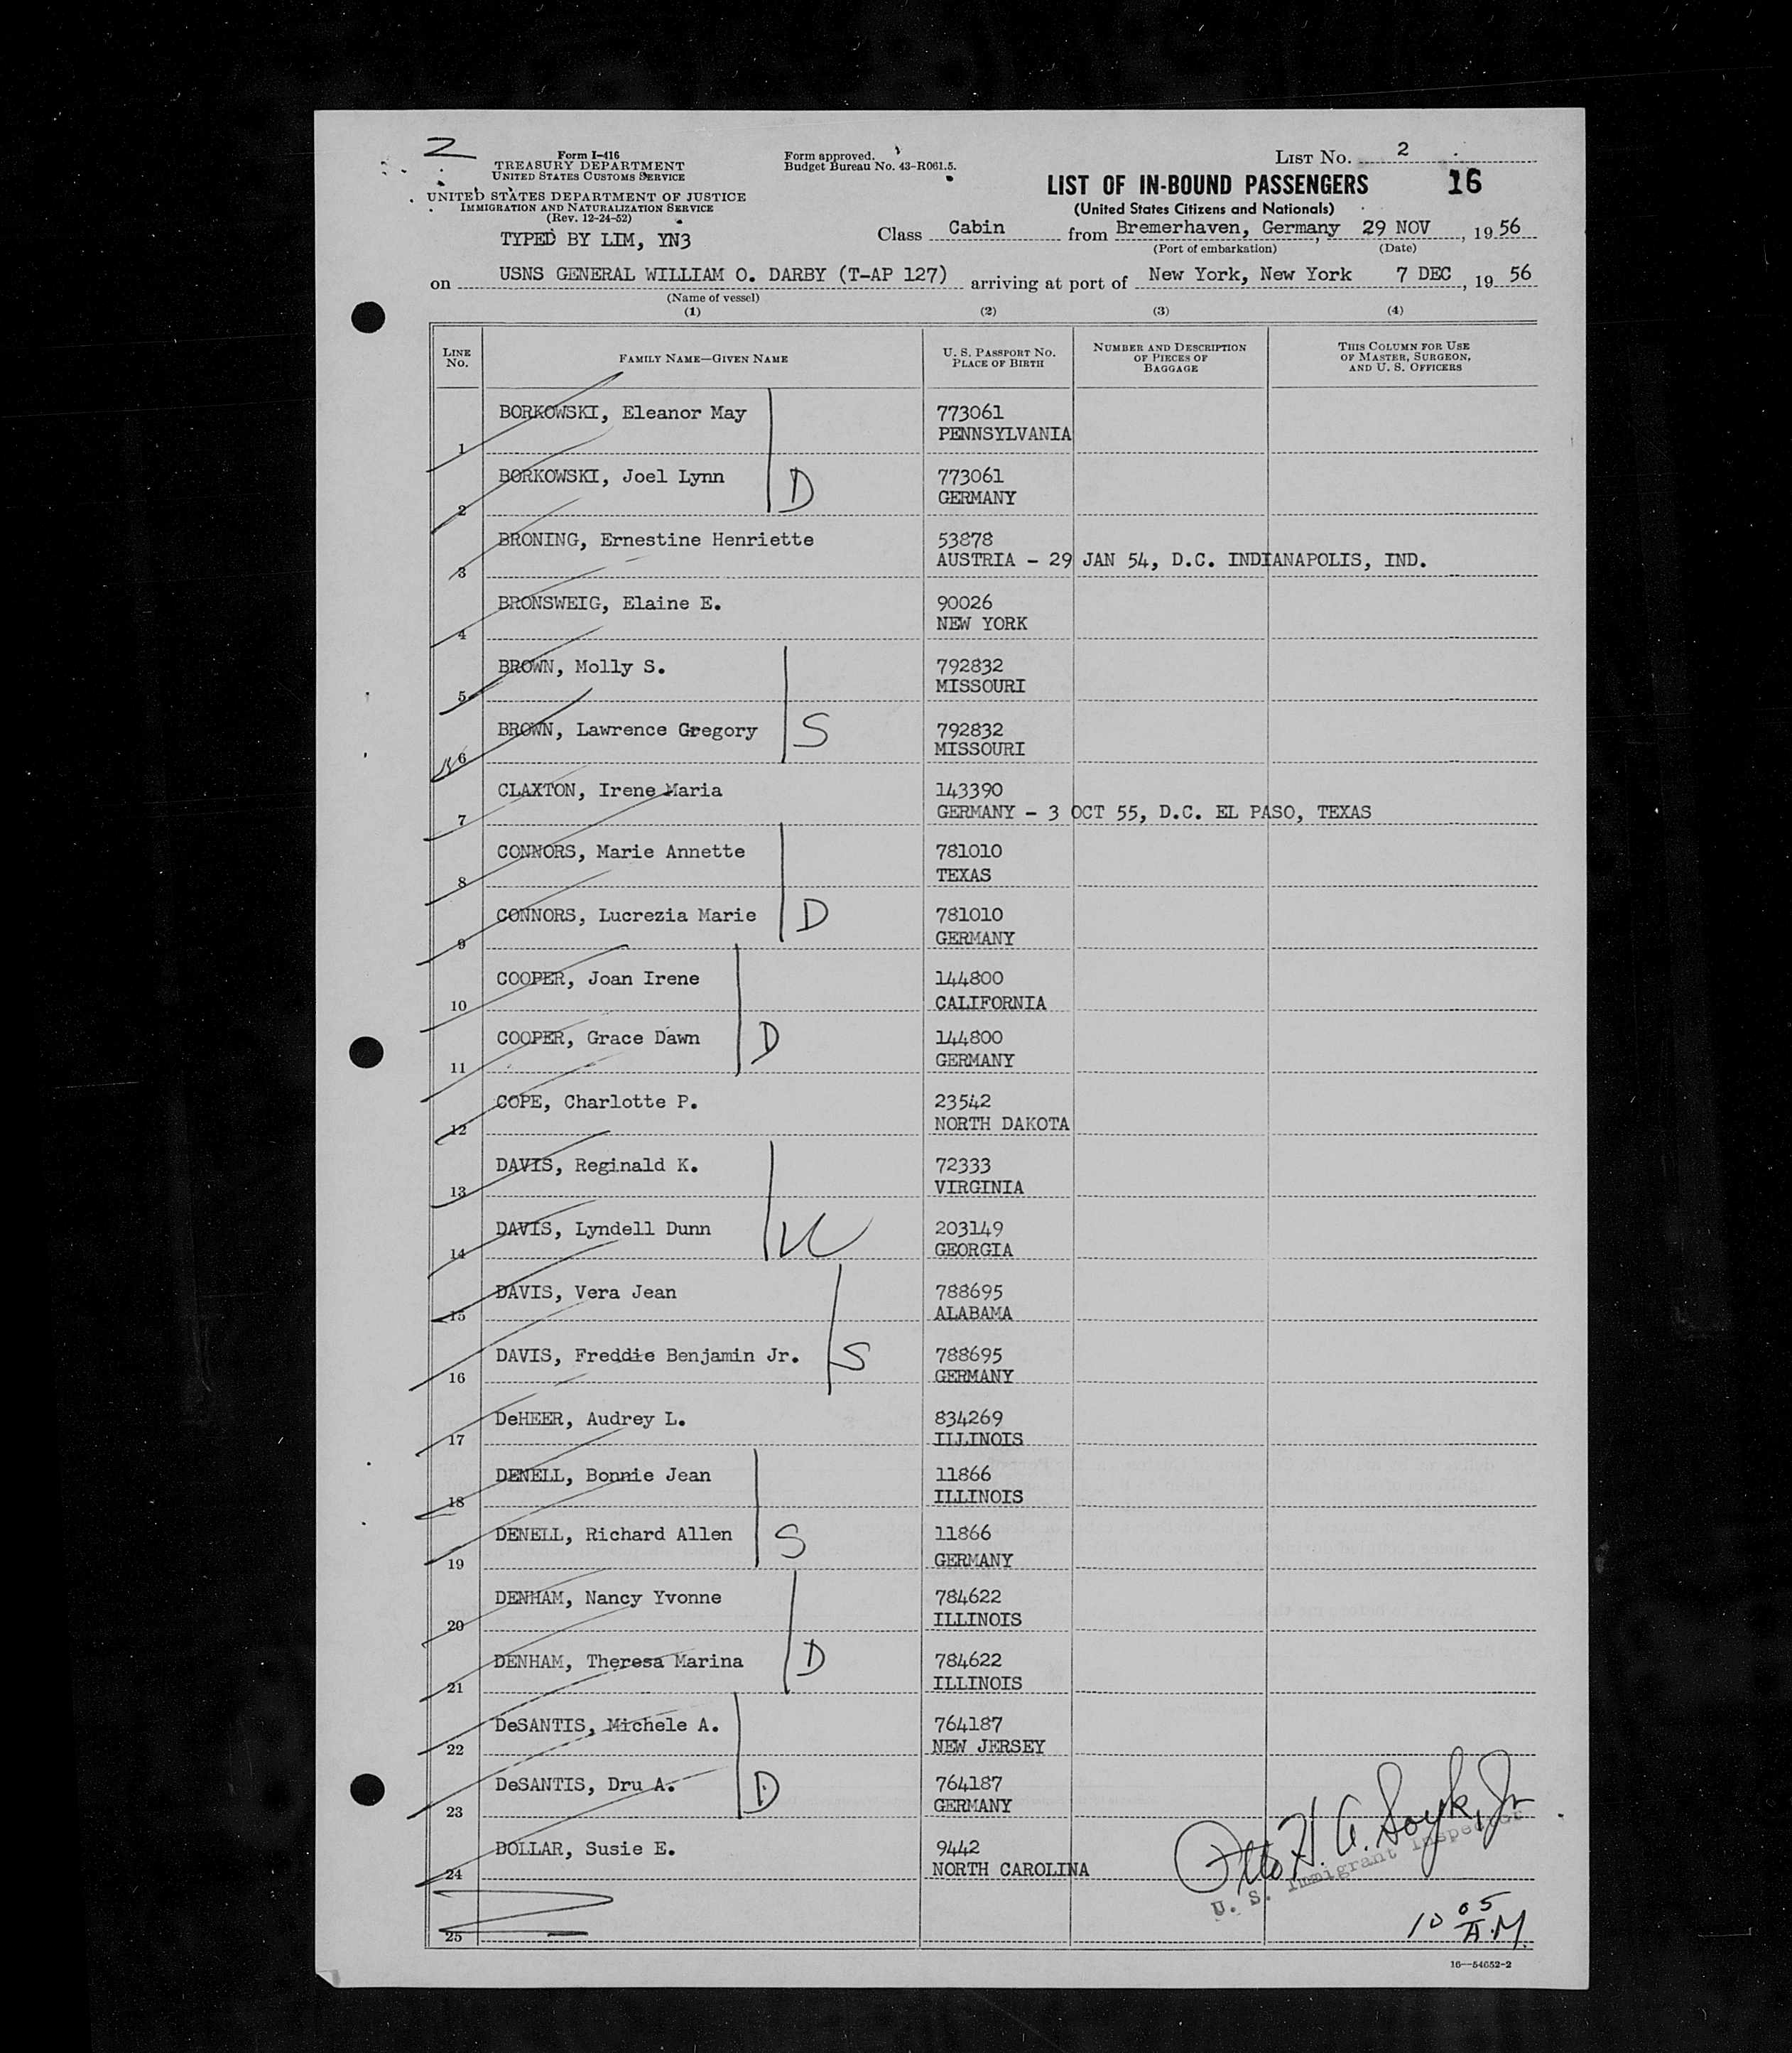 2
Form I-416
TREASURY DEPARTMENT
UNITED STATES CUSTOMS SERVICE
UNITED STATES DEPARTMENT OF JUSTICE
IMMIGRATION AND NATURALIZATION SERVICE
(Rev. 12-24-52)
TYPED BY LIM, YN3
Form approved.
Budget Bureau No. 43-R061.5.
LIST No. 2
LIST OF IN-BOUND PASSENGERS 16
(United States Citizens and Nationals)
Class Cabin from Bremerhaven, Germany, 29 NOV, 1956
(Port of embarkation) (Date)
on USNS GENERAL WILLIAM O. DARBY (T-AP 127) arriving at port of New York, New York 7 DEC, 1956
(Name of vessel)
(1) (2) (3) (4)
LINE No. FAMILY NAME—GIVEN NAME U. S. PASSPORT No. PLACE OF BIRTH NUMBER AND DESCRIPTION OF PIECES OF BAGGAGE THIS COLUMN FOR USE OF MASTER, SURGEON, AND U. S. OFFICERS
BORKOWSKI, Eleanor May 773061
1 PENNSYLVANIA
BORKOWSKI, Joel Lynn D 773061
2 GERMANY
BRONING, Ernestine Henriette 53878
3 AUSTRIA - 29 JAN 54, D.C. INDIANAPOLIS, IND.
BRONSWEIG, Elaine E. 90026
4 NEW YORK
BROWN, Molly S. 792832
5 MISSOURI
BROWN, Lawrence Gregory S 792832
6 MISSOURI
CLAXTON, Irene Maria 143390
7 GERMANY - 3 OCT 55, D.C. EL PASO, TEXAS
CONNORS, Marie Annette 781010
8 TEXAS
CONNORS, Lucrezia Marie D 781010
9 GERMANY
COOPER, Joan Irene 144800
10 CALIFORNIA
COOPER, Grace Dawn D 144800
11 GERMANY
COPE, Charlotte P. 23542
12 NORTH DAKOTA
DAVIS, Reginald K. 72333
13 VIRGINIA
DAVIS, Lyndell Dunn 203149
14 GEORGIA
DAVIS, Vera Jean 788695
15 ALABAMA
DAVIS, Freddie Benjamin Jr. S 788695
16 GERMANY
DeHEER, Audrey L. 834269
17 ILLINOIS
DENELL, Bonnie Jean 11866
18 ILLINOIS
DENELL, Richard Allen S 11866
19 GERMANY
DENHAM, Nancy Yvonne 784622
20 ILLINOIS
DENHAM, Theresa Marina D 784622
21 ILLINOIS
DeSANTIS, Michele A. 764187
22 NEW JERSEY
DeSANTIS, Dru A. D 764187
23 GERMANY
DOLLAR, Susie E. 9442
24 NORTH CAROLINA
Otto H. A. Soyk, Jr.
U. S. Immigrant Inspector
10 05 A.M.
25
16—54652-2